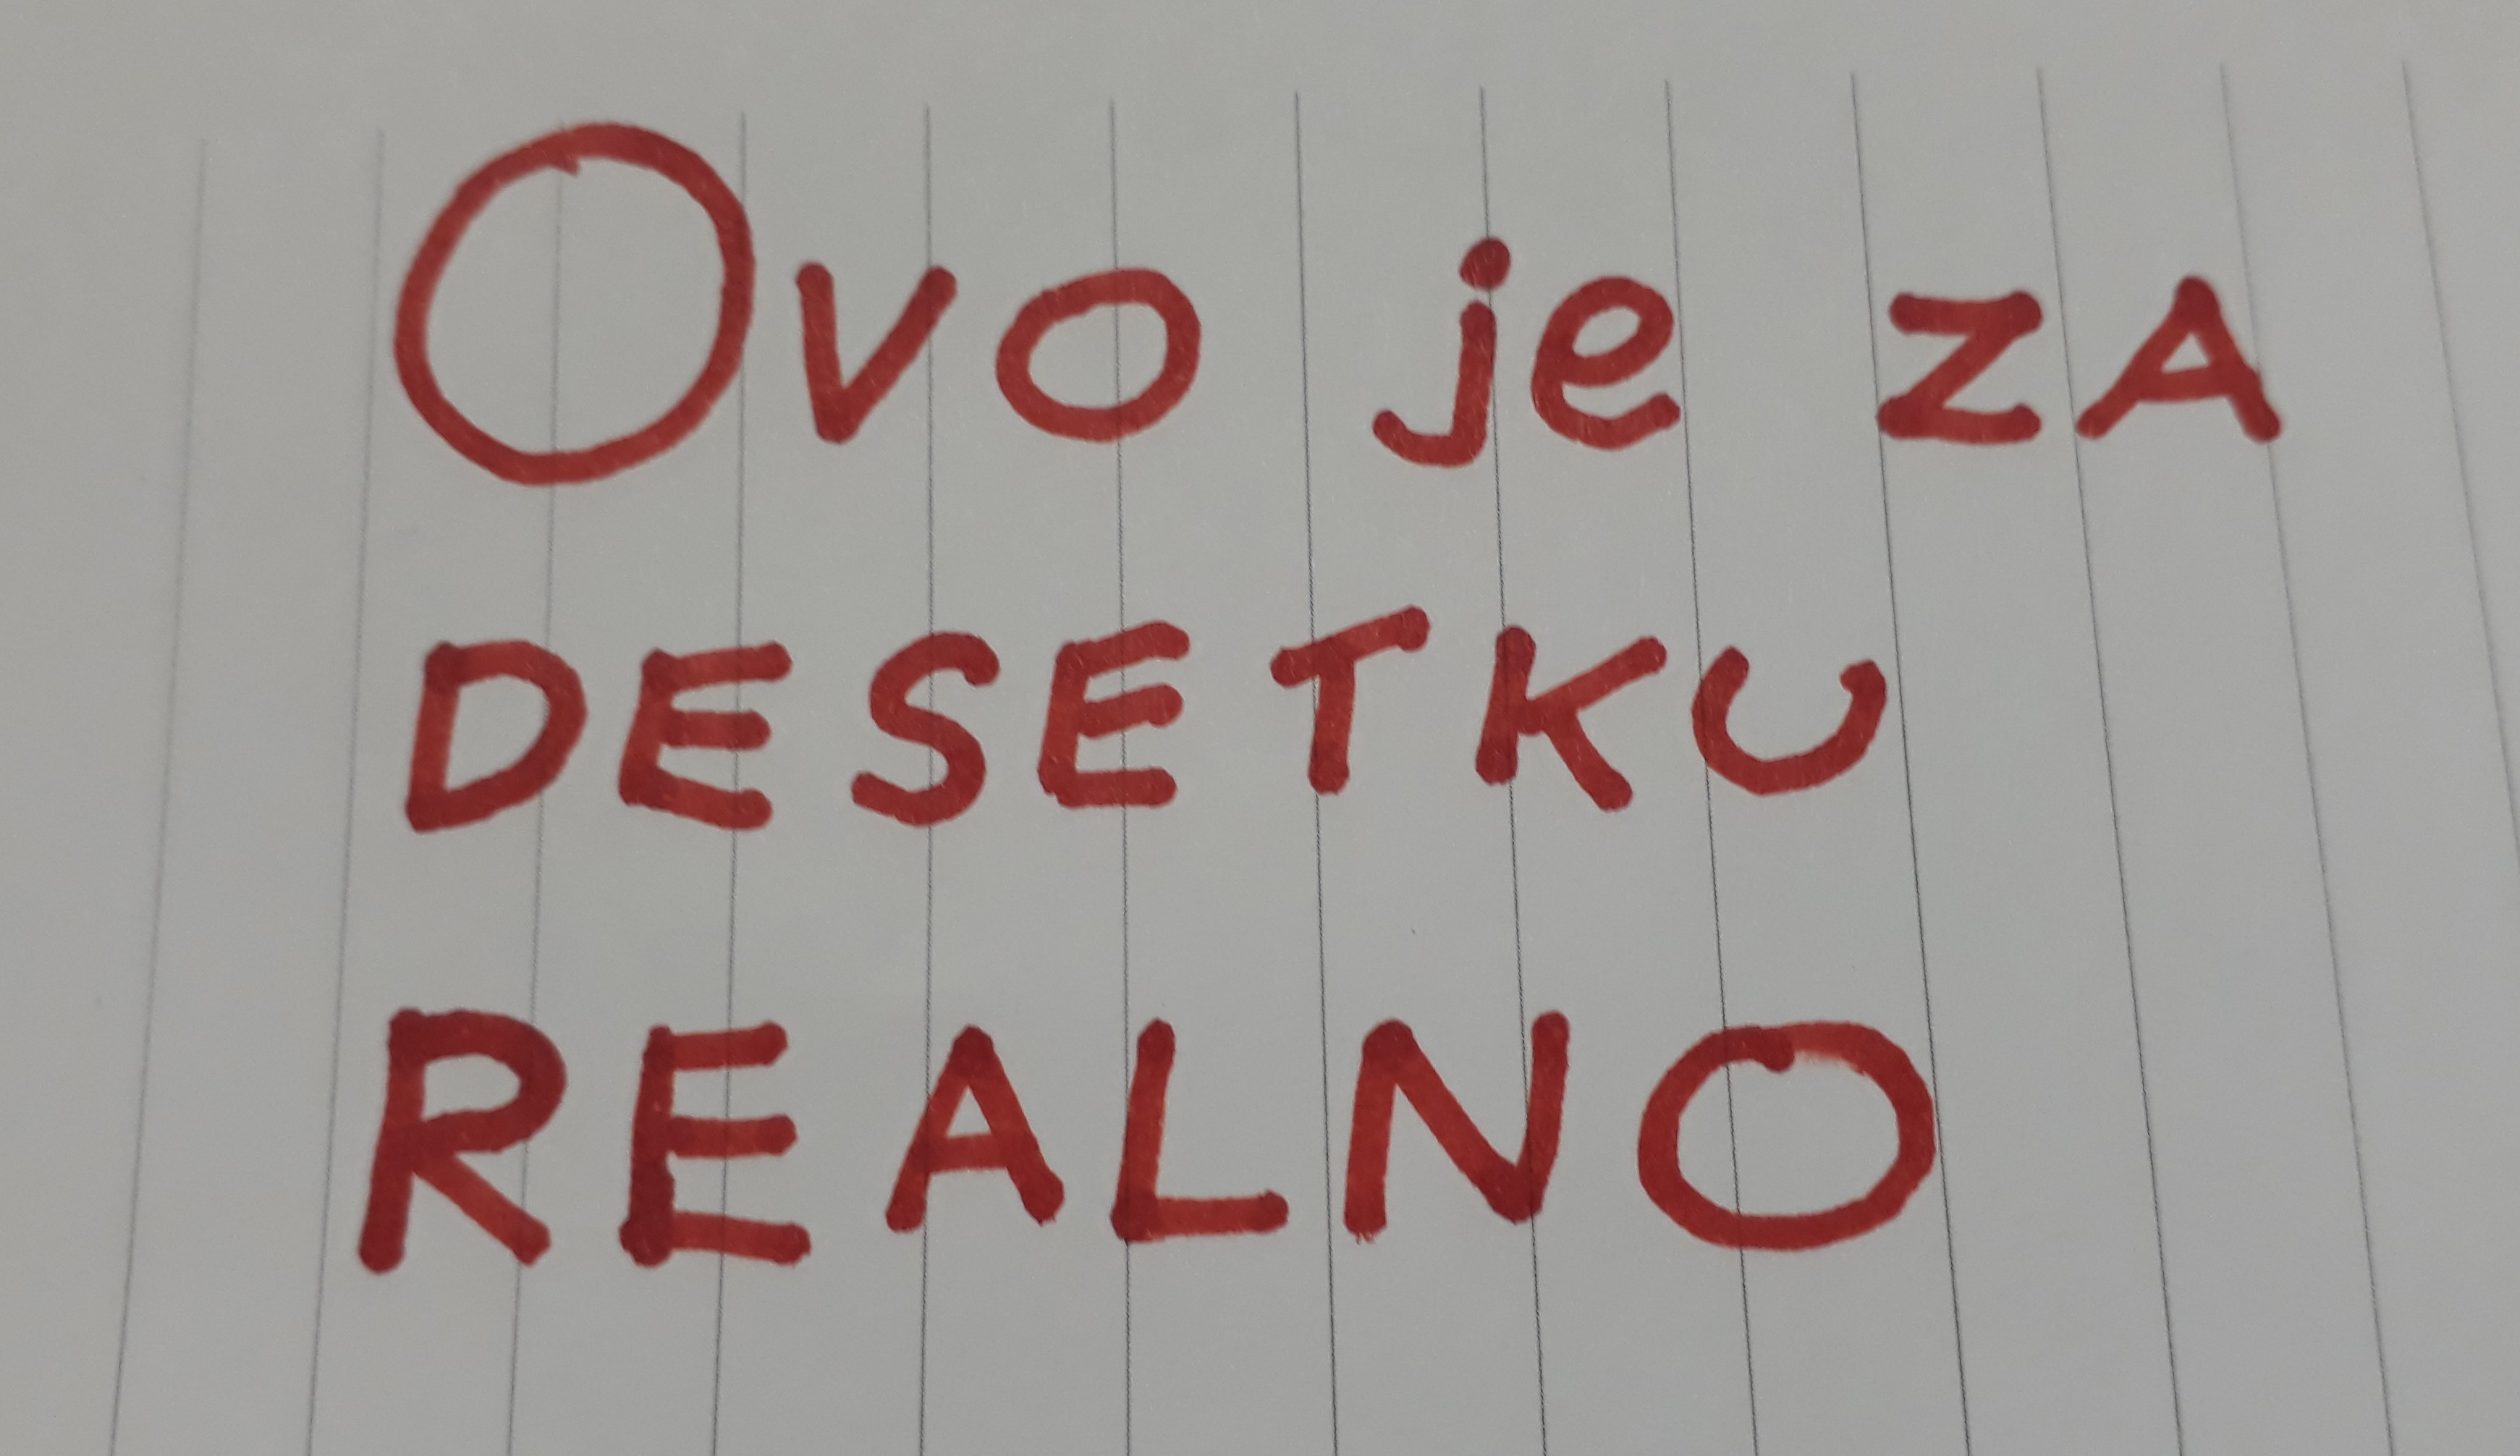 Ovo je zA
DESETKU
REALNO